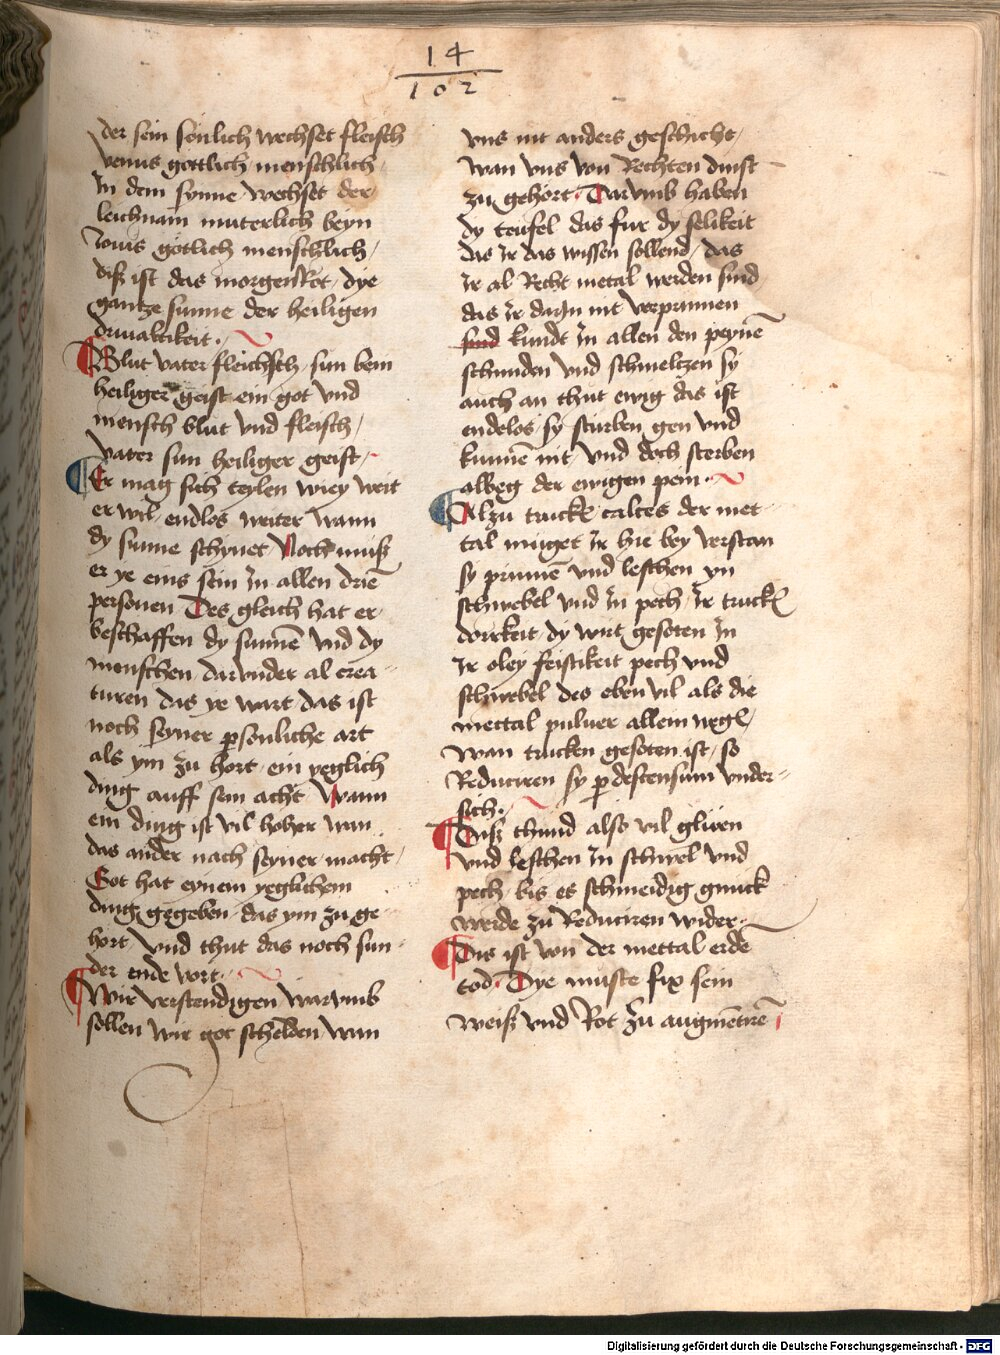 14
102
der sein sönlich wechset fleisch
venus göttlich menschlich
In dem synne wechset der
leichnam muterlich beyn
Jovis götlich menschlich /
diß ist das morgenrot / dye
gantze sunne der heiligen
drivaltikeit.
Blut vater fleichsch / sun bein
heiliger geist ein got vnd
mensch blut vnd fleisch /
vater sun heiliger geist /
Er mag sich teylen wiey weit
er wil / endlos weiter wann
dy sunne schynet Noch muß
er ye eins sein In allen driē
personen Des gleich hat er
beschaffen dy sunnē vnd dy
menschen / darunder al crea
turen das ye wart das ist
noch seyner psönliche art
als ym zu hort / ein yeglich
ding auff sein acht Wann
ein ding ist vil hoher wan
das ander nach seyner macht /
Got hat eynem yeglichem
ding gegeben / das ym zu ge
hort / vnd thut das noch sun
der ende vort.
Wir verstendigen warvmb
sollen wir got schelden / wan
vns nit anders geschicht /
wan vns von Rechten dinst
zu gehort. Darvmb haben
dy teufel das fur dy selikeit
das Ir das wissen sollend / das
Ir al Recht metal werden sind
das Ir darJn nit verprinnen
sind kundt In allen den peynē
schunden vnd schmeltzen sy
auch an thut ewig das ist
endelos / sy sturben gen vnd
kunnē nit / vnd doch sterben
albeg der ewigen pein.
Alzu trucke caltes der met
tal muget Ir hie bey verstan
sy prinnē vnd leschen yn
schwebel vnd In pech / Ir truck
dorrkeit / dy wirt gesoten In
Ir oley feistikeit pech vnd
schwebel des eben vil als die
mettal puluer allein wegl /
wan trucken gesoten ist / so
Reduciren sy p descensum vnder
sich.
Diß thund also vil glüen
vnd leschen In schwel vnd
pech / bis es schmeidig gnuck
werde zu Reduciren wider.
Dis ist von der mettal erde
tod. Dye muste fix sein
weiß vnd Rot zu augmētirē
Digitalisierung gefördert durch die Deutsche Forschungsgemeinschaft - DFG